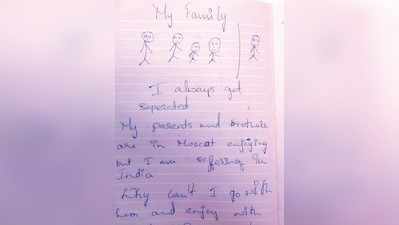 My Family
I always get
seperated
My parents and brothers
are in Muscat enjoying
but I am suffering in
India
Why can't I go with
him and enjoy with